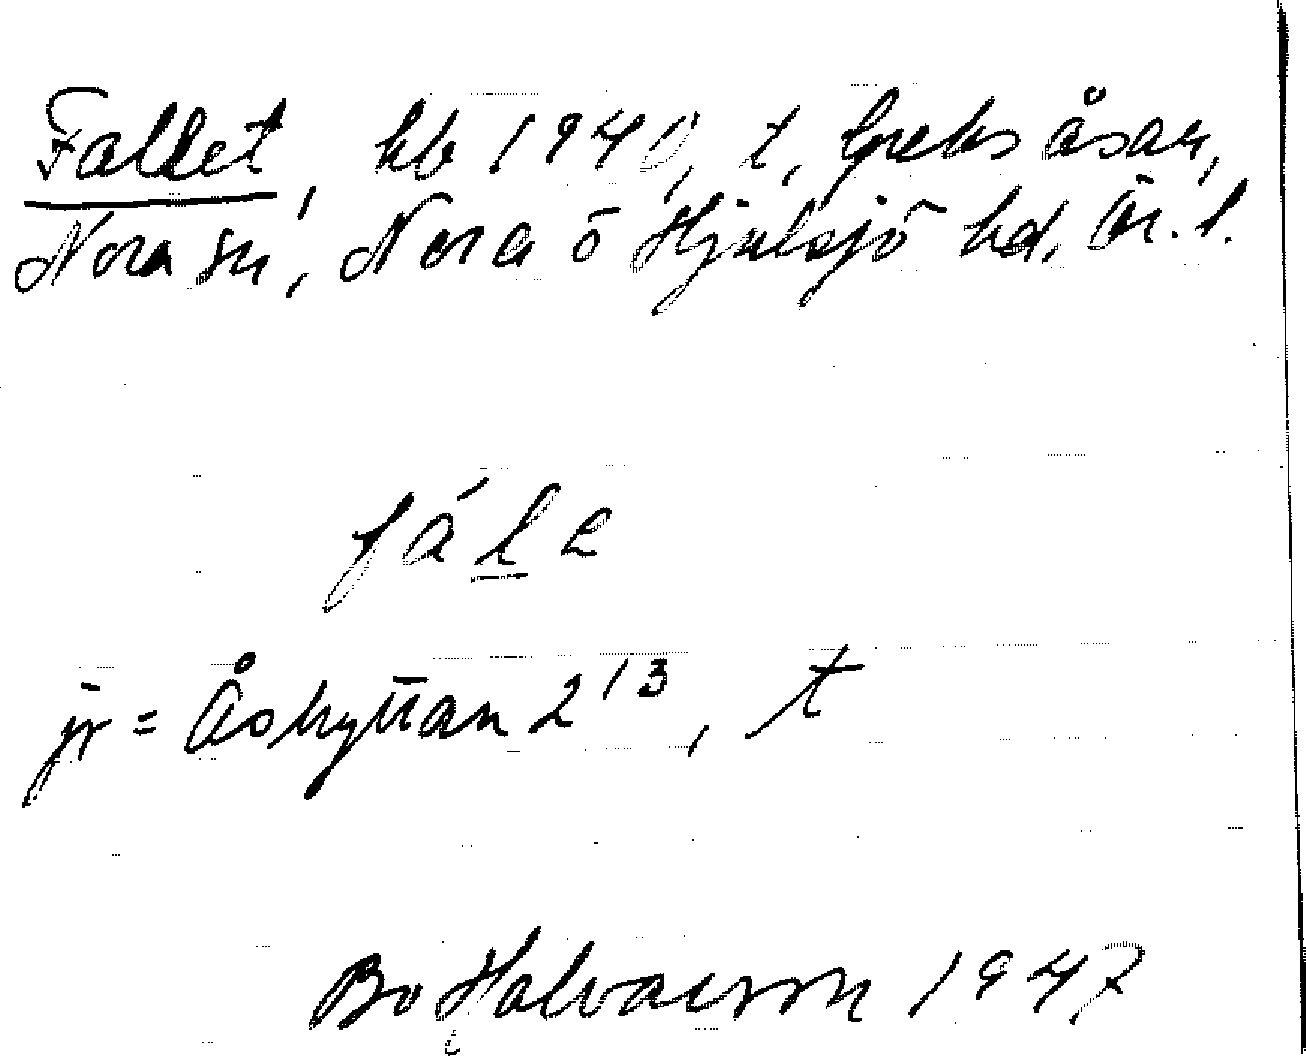 Fallet, hb 1940, t, Greksåsar,
Nora sn, Nora o Hjulsjö hd, Ör. l.
fále
jr = Åshyttan 2¹³, t
Bo Halvarson 1947